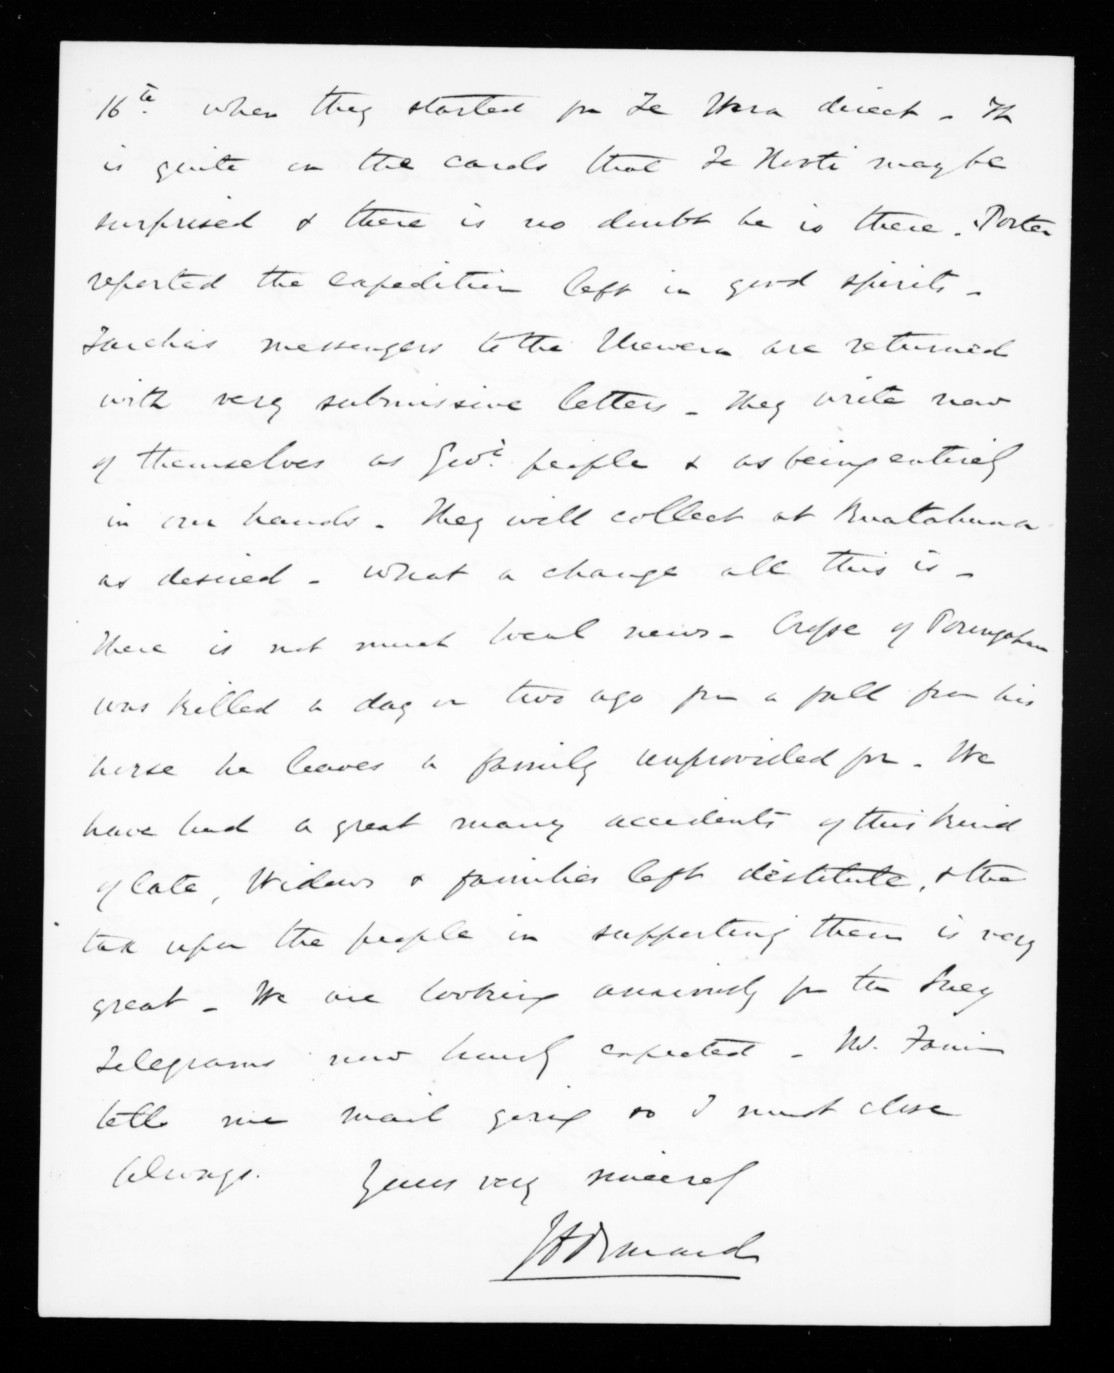 16th. when they started for Te Wera direct - It
is quite on the cards that Te Kooti may be
surprised & there is no doubt he is there. Porter
reported the expedition left in good spirits -
Tareha's messengers to the Urewera are returned
with very submissive letters - They write now
of themselves as Govt. people & as being entirely
in our hands - They will collect at Ruatahuna
as desired - What a change all this is -
There is not much local news - Crosse of Porangahau
was killed a day or two ago from a fall from his
horse he leaves a family unprovided for - We
have had a great many accidents of this kind
of late, Widows & families left destitute, & the
tax upon the people in supporting them is very
great - We are looking anxiously for the Suez
Telegrams now hourly expected - Mr. Fannin
tells me mail going so I must close
Always. Yours very sincerely
JDOrmond